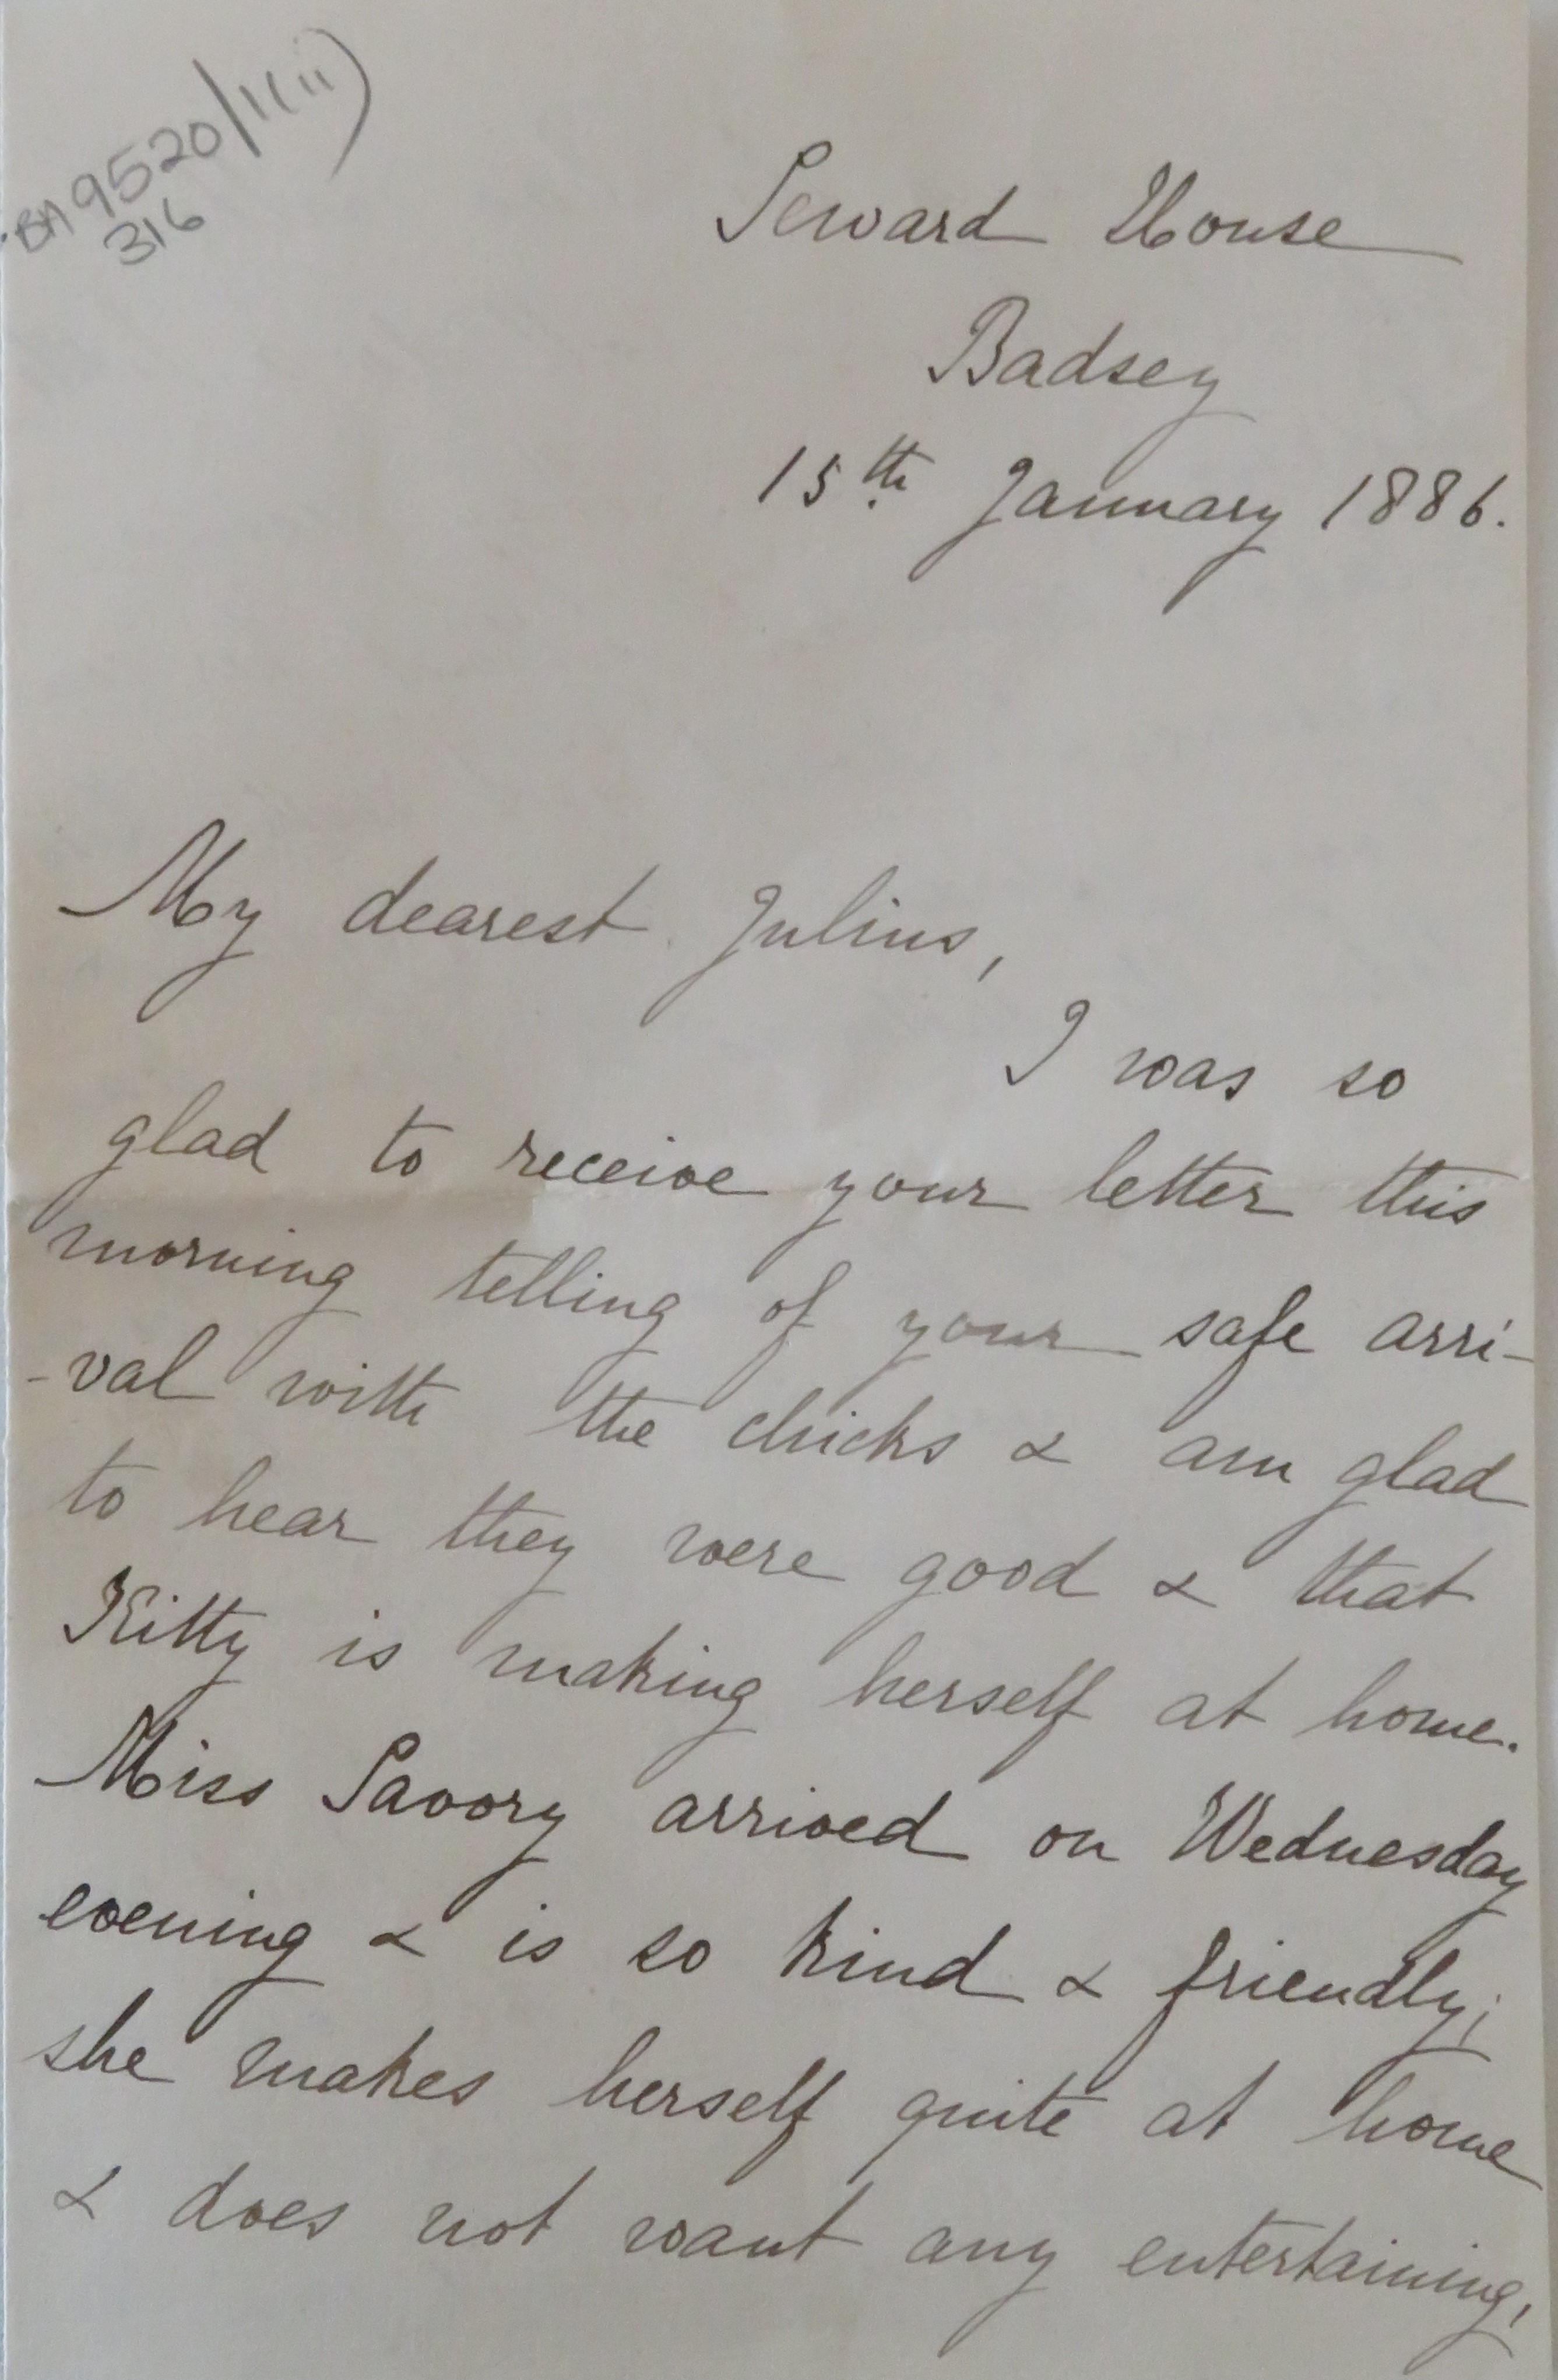 BA 9520/1(ii)
316
Seward House
Badsey
15th January 1886.
My dearest Julius,
I was so
glad to receive your letter this
morning telling of your safe arri-
-val with the chicks & am glad
to hear they were good & that
Kitty is making herself at home.
Miss Savory arrived on Wednesday
evening & is so kind & friendly;
she makes herself quite at home
& does not want any entertaining,